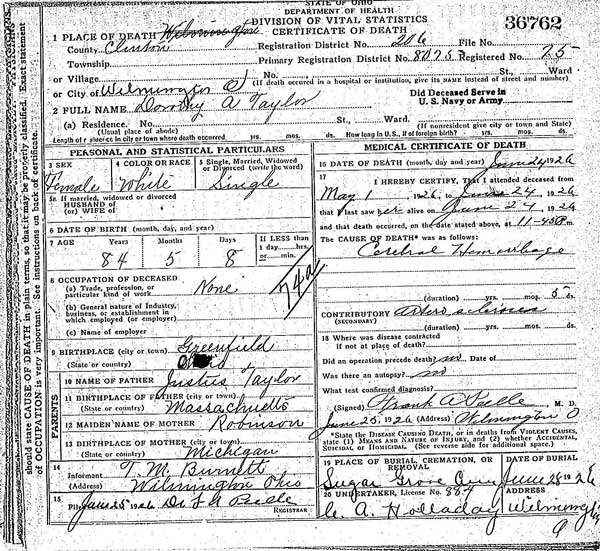 STATE OF OHIO
DEPARTMENT OF HEALTH
DIVISION OF VITAL STATISTICS
CERTIFICATE OF DEATH
36762
1 PLACE OF DEATH Wilmington
County Clinton Registration District No. 206 File No.
Township Primary Registration District No. 8075 Registered No. 75
or Village No. St., Ward
or City of Wilmington O (If death occurred in a hospital or institution, give its NAME instead of street and number)
Did Deceased Serve in
U. S. Navy or Army
2 FULL NAME Dorothy A Taylor
(a) Residence. No. St., Ward
(Usual place of abode) (If nonresident give city or town and State)
Length of residence in city or town where death occurred yrs. mos. ds. How long in U.S., if of foreign birth? yrs. mos. ds.
PERSONAL AND STATISTICAL PARTICULARS
3 SEX 4 COLOR OR RACE 5 Single, Married, Widowed
or Divorced (write the word)
Female White Single
5a If married, widowed or divorced
HUSBAND of
(or) WIFE of
6 DATE OF BIRTH (month, day, and year)
7 AGE Years Months Days If LESS than
1 day,....hrs.
or......min.
84 5 8
74a
8 OCCUPATION OF DECEASED
(a) Trade, profession, or
particular kind of work None
(b) General nature of Industry,
business, or establishment in
which employed (or employer)
(c) Name of employer
9 BIRTHPLACE (city or town) Greenfield
(State or country) Ohio
PARENTS
10 NAME OF FATHER Justus Taylor
11 BIRTHPLACE OF FATHER (city or town)
(State or country) Massachuetts
12 MAIDEN NAME OF MOTHER Robinson
13 BIRTHPLACE OF MOTHER (city or town)
(State or country) Michigan
14
Informant T. M. Burnett
(Address) Wilmington Ohio
15
Filed June 25 1926 Dr F A Peelle
REGISTRAR
MEDICAL CERTIFICATE OF DEATH
16 DATE OF DEATH (month, day and year) June 24 1926
17
I HEREBY CERTIFY, That I attended deceased from
May 1 1926, to June 24, 1926
that I last saw her alive on June 24, 1926
and that death occurred, on the date stated above, at 11-45 P.m.
The CAUSE OF DEATH* was as follows:
Cerebral Hemorrhage
(duration) yrs. mos. 5 ds.
CONTRIBUTORY Arterio sclerosis
(SECONDARY)
(duration) yrs. mos. ds.
18 Where was disease contracted
if not at place of death?
Did an operation precede death? no Date of
Was there an autopsy? no
What test confirmed diagnosis?
(Signed) Frank A Peelle M. D.
June 25, 1926 (Address) Wilmington O
*State the DISEASE CAUSING DEATH, or in deaths from VIOLENT CAUSES,
state (1) MEANS AND NATURE OF INJURY, and (2) whether ACCIDENTAL,
SUICIDAL or HOMICIDAL. (See reverse side for additional space.)
19 PLACE OF BURIAL, CREMATION, OR
REMOVAL DATE OF BURIAL
Sugar Grove Cem June 26 1926
20 UNDERTAKER, License No. 884 ADDRESS
C. A. Holladay Wilmington
should state CAUSE OF DEATH in plain terms, so that it may be properly classified. Exact statement
of OCCUPATION is very important. See instructions on back of certificate.